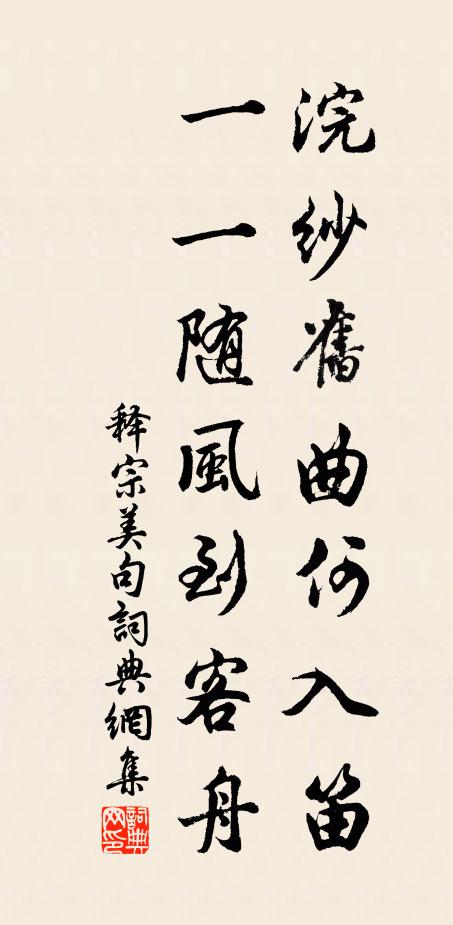 浣纱舊曲何入笛
一一随風到客舟
释宗美句詞典網集
詞典网印